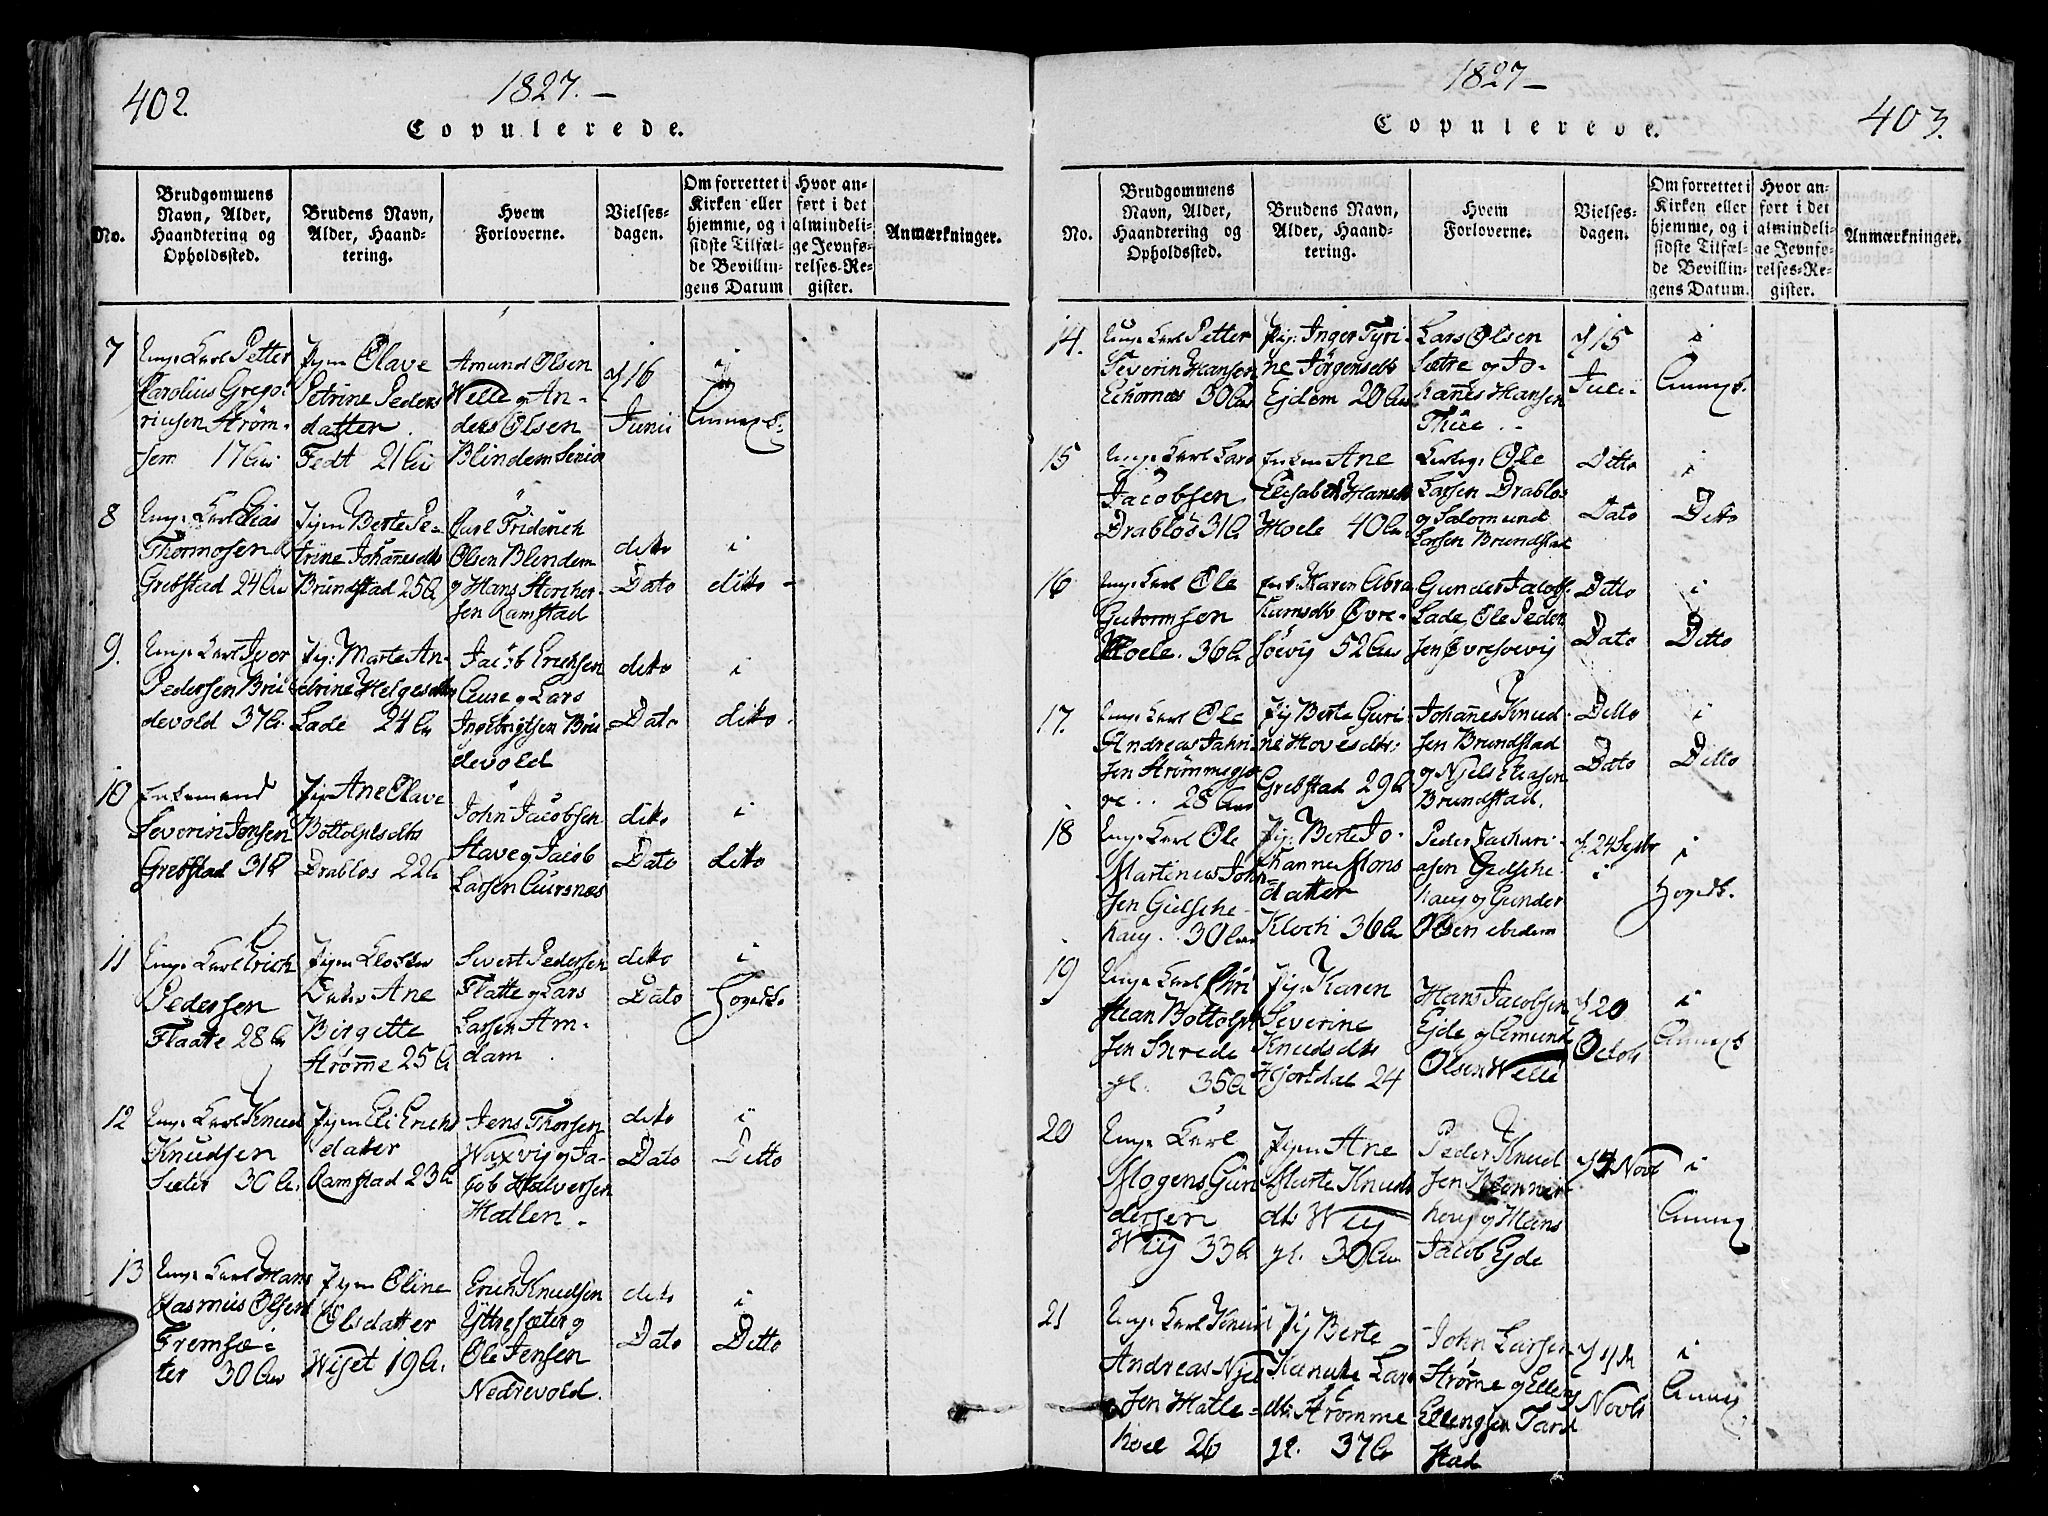 402.
1827. –
Copulerede.
No.
Brudgommens Navn, Alder, Haandtering og Opholdssted.
Brudens Navn, Alder, Haandtering.
Hvem Forloverne.
Vielsesdagen.
Om forrettet i Kirken eller hjemme, og i sidste Tilfælde Bevillingens Datum
Hvor anført i det almindelige Jevnførelses-Register.
Anmærkninger.
7
Ung Karl Petter
Karolius Grego-
riusen Strøm-
sem 17 Aar
Pigen Olave
Petrine Peders
datter
Fedt 21 Aar
Amund Olsen
Welle og An-
ders Olsen
Blindem Senior
d 16
Junii
i
Annexk.
8
Ung Karl Elias
Thormosen
Grebstad 24 Aar
Pigen Berte Pe-
trine Johannesdtr
Brundstad 25 A
Carl Friderich
Olsen Blindem
og Hans Storcher-
sen Ramstad
dito
Dato
i
dito -
9.
Ung Karl Iver
Pedersen Bru
devold 37 A.
Pig: Marte An-
drine Helgesdatter
Lade 24 A
Jacob Erichsen
Aure og Lars
Ingebrigtsen Bru
devold
dito
Dato
i
dito -
10
Enkemand
Severin Jensen
Grebstad 31 A
Pigen Ane Olave
Bottolphsdtr
Drablos 22 A
John Jacobsen
Stave og Jacob
Larsen Aursnes
dito
Dato
i
dito
11
Ung Karl Erich
Pedersen
Flaate 28 A
Pigen Klocker
Datter Ane
Birgette
Strømme 25 A
Sivert Pedersen
Flatte og Lars
Larsen Am-
dam
dito
Dato
i
Hogedk.
12
Ung Karl Knud
Knudsen
Sæter 30 A.
Pigen Eli Erichs
datter
Ramstad 23 A
Jens Thorsen
Waxvig og Ja-
cob Halversen
Hatlen -
dito
Dato
i
Ditto
13
Ung Karl Hans
Rasmus Olsen
Fremsæ-
ter 30 Aar
Pigen Oline
Olsdatter
Wiset 19 A.
Erich Knudsen
Yttresæter og
Ole Jensen
Nedrevold.
dito
Dato
i
Ditto
1827 –
403.
Copulerede.
No.
Brudgommens Navn, Alder, Haandtering og Opholdssted.
Brudens Navn, Alder, Haandtering.
Hvem Forloverne.
Vielsesdagen.
Om forrettet i Kirken eller hjemme, og i sidste Tilfælde Bevillingens Datum.
Hvor anført i det almindelige Jevnførelses-Register.
Anmærkninger.
14.
Ung Karl Petter
Severin Hansen
Echornes 30 Aar
Pig: Inger Tyri-
ne Jörgensdtr
Ejdem 20 Aar
Lars Olsen
Sætre og Jo-
hannes Hansen
Thue . -
d 15
Juli
i
Annexk.
15
Ung Karl Lars
Jacobsen
Drablos 31 A
Enken Ane
Elisabet Hansdtr
Hole 40 A
Ole
Larsen Drablos
og Salomund
Larsen Brundstad
Ditto
Dato
i
Ditto
16
Ung Karl Ole
Guttormsen
Hole. 36 A
Enk: Karen Abra
hamsdtr Øvre-
Søevig 52 Aar
Gunder Jacobs.
Lade, Ole Peder
sen Øvresoevig
Ditto
Dato
i
Ditto
17.
Ung Karl Ole
Andreas Jahn-
sen Strömmegjer
28 Aar
Pig Berte Guri-
ne Hovesdtr:
Grebstad 29 A
Johannes Knud
sen Brundstad
og Njels Eliasen
Brundstad.
Ditto
Dato
i
Ditto
18
Ung Karl Ole
Martinus John
sen Gielsche-
houg .. 30 Aar
Pig: Berte Jo-
hanne Mons
datter
Kloch 36 A
Peder Zachari-
asen Gielsche
houg og Gunder
Olsen ibidem
d. 24 Septbr
i
Hogedk.
19
Ung Karl Chri
stean Bottolph
sen
gl. 35 A
Pig: Karen
Severine
Knudsdtr
Hjortdal 24
Hans Jacobsen
Ejde og Amund
Olsen Welle
d 20
Octob
i
Annexk
20
Ung Karl
Mogens Gun
dersen
Wiig 33 A
Pigen Ane
Marte Knuds
dtr Wiig
gl. 30 Aar
Peder Knud
sen
houg og Hans
Jacob Ejde
d 4 Novb
i
Annex
21
Ung Karl Knud
Andreas Njel
sen Hatle-
hoel 26
Pig Berte
Lars
dtr: Strømme
gl. 37 A
John Larsen
Strømme og Elling
Ellingsen Tand
stad
d 4de
Novb
i
Annex